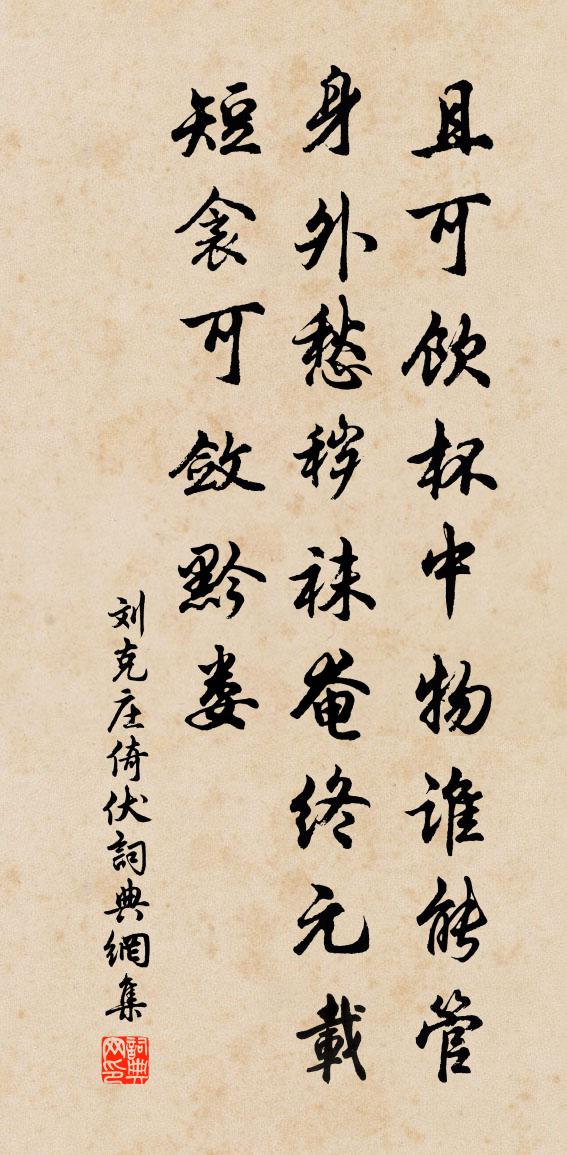 且可饮杯中物谁能管
身外愁秽袜奄终元載
短衾可敛黔娄
刘克庄倚伏詞典網集
詞典网印